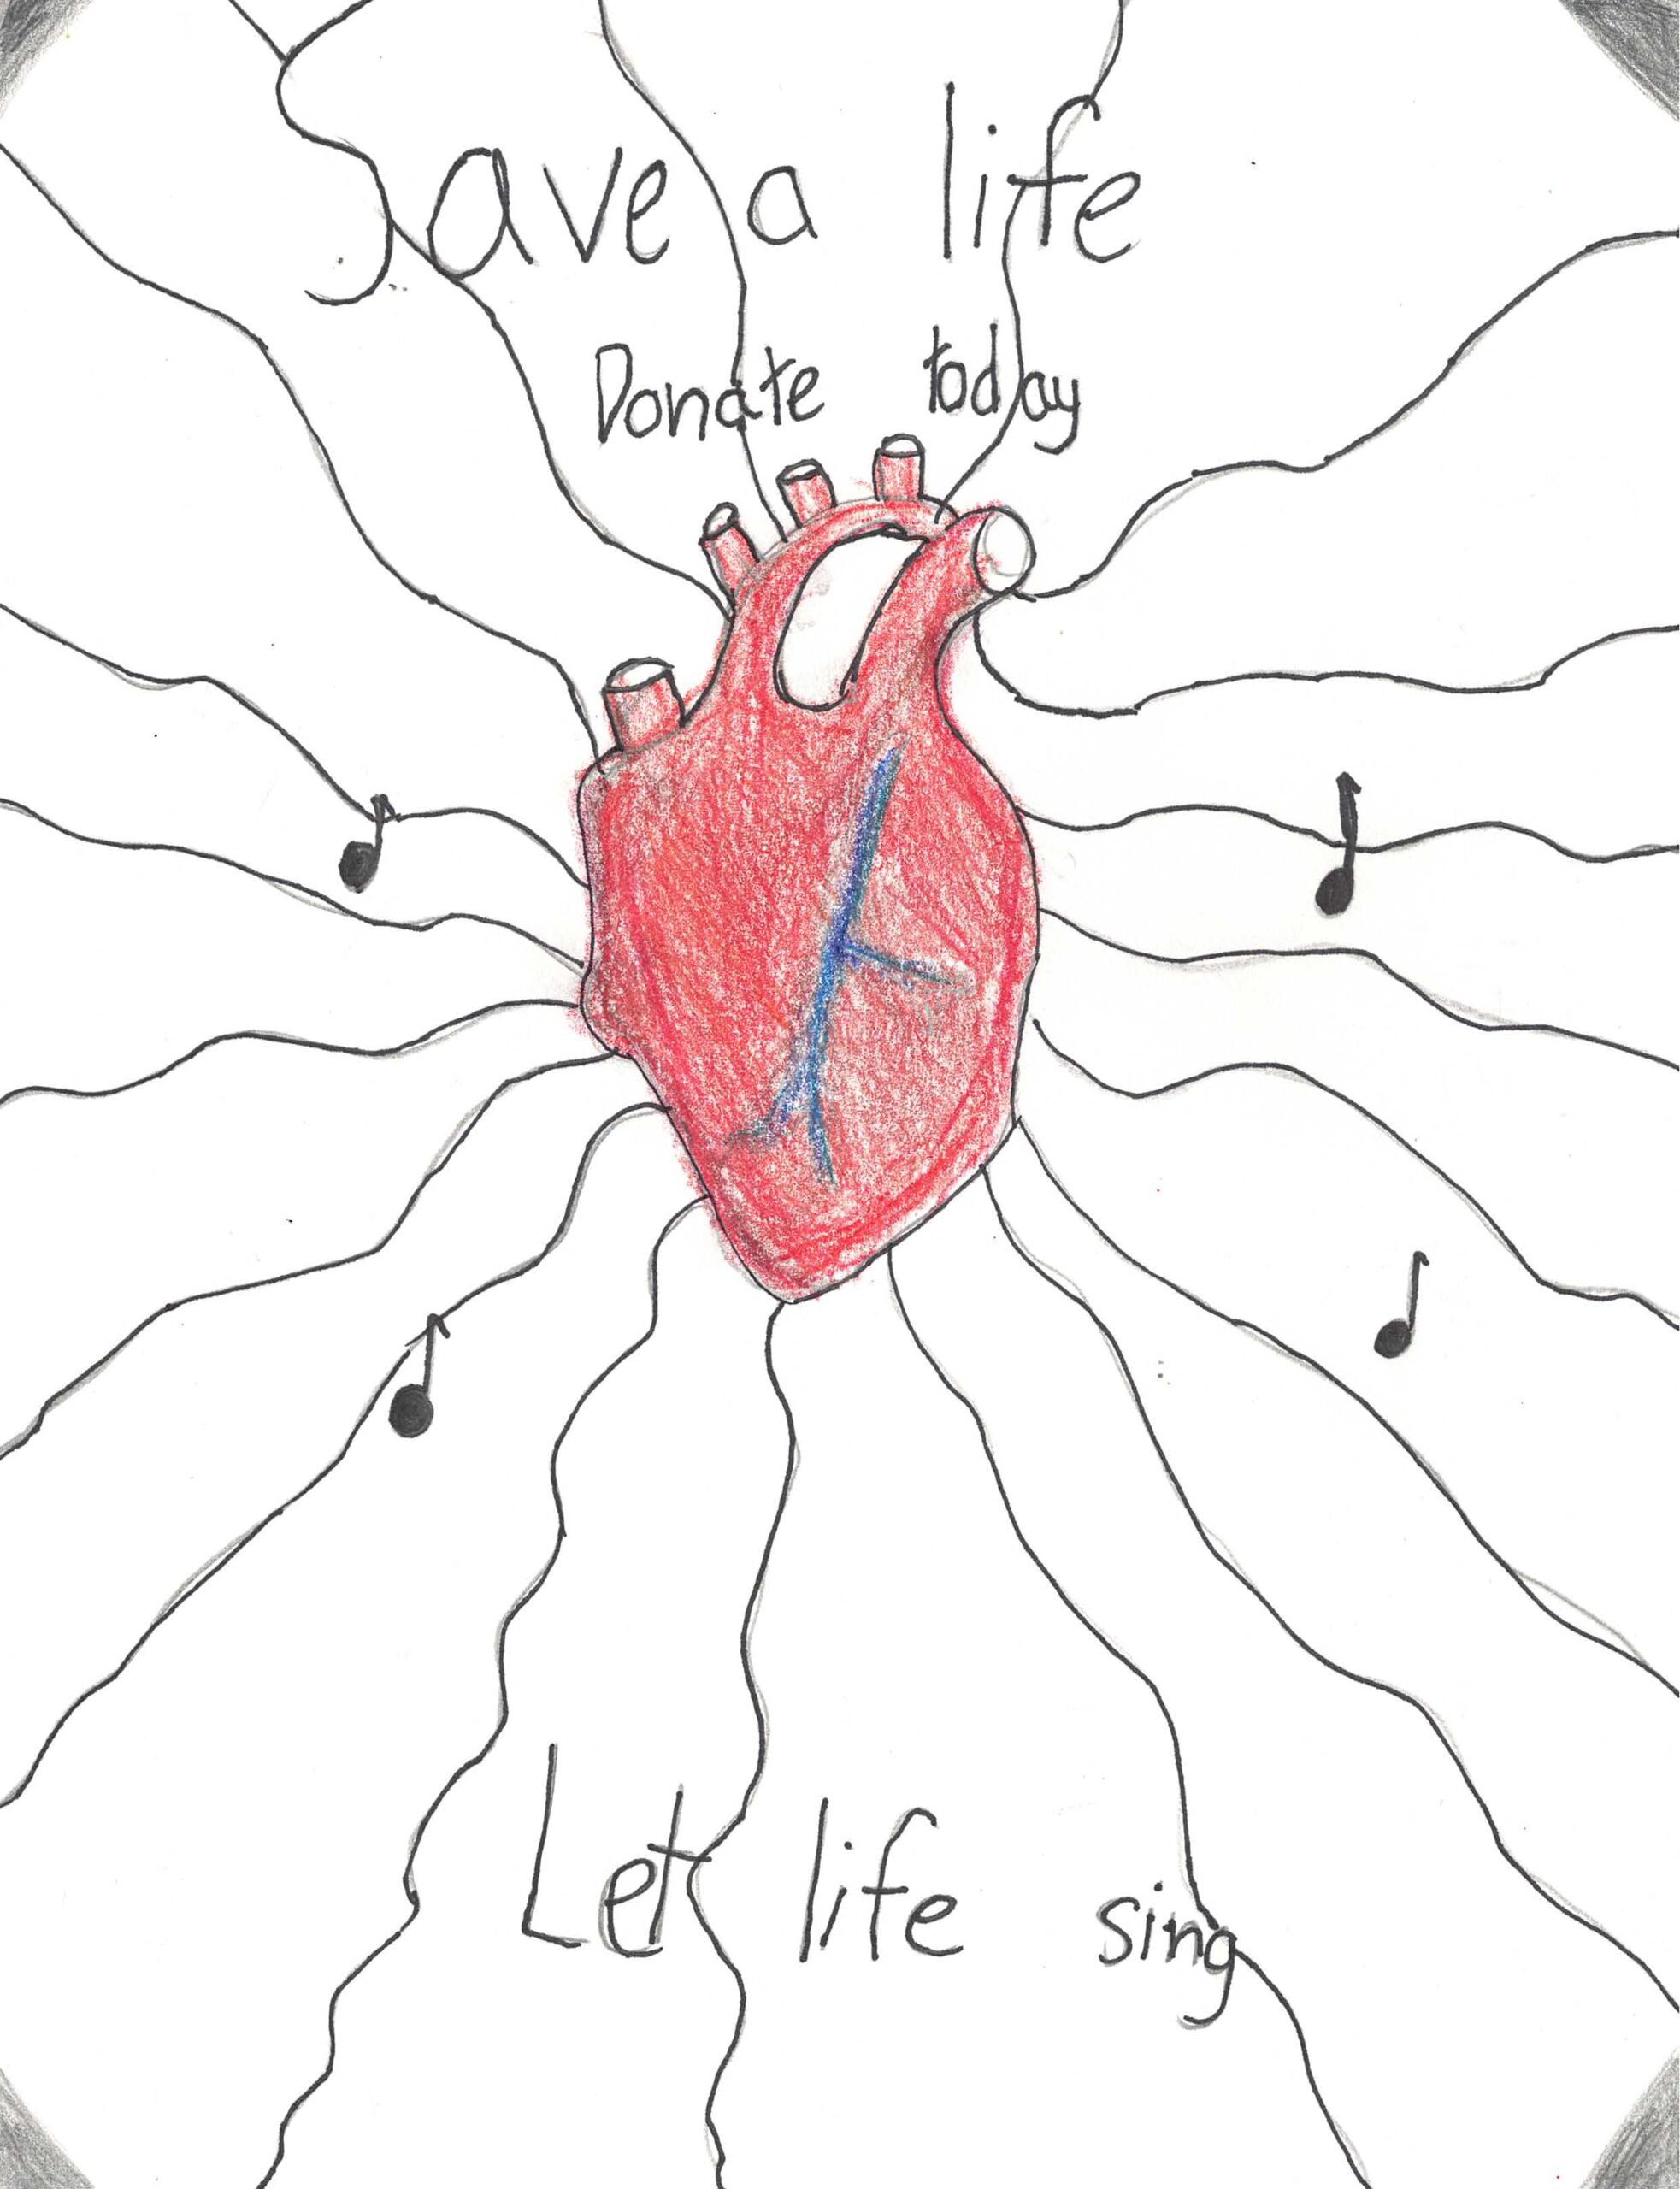 Save a life
Donate today
Let life sing